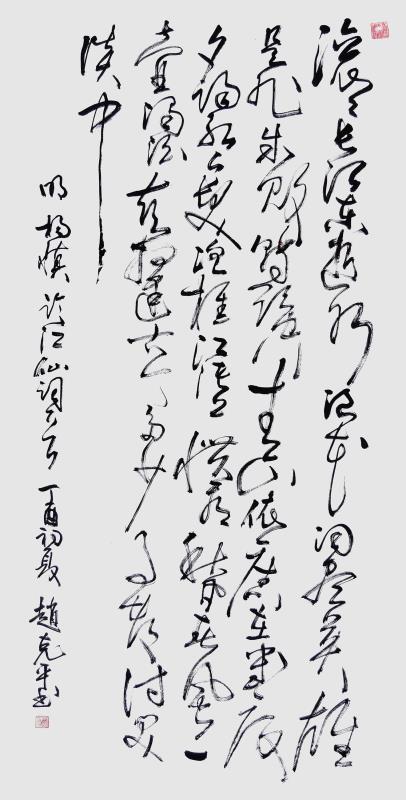 滚滚长江东逝水浪花淘尽英雄
是非成败转头空青山依旧在几度
夕阳红白发渔樵江渚上惯看秋月春风一
壶浊酒喜相逢古今多少事都付笑
谈中
明杨慎临江仙词一首丁酉初夏趙克平书